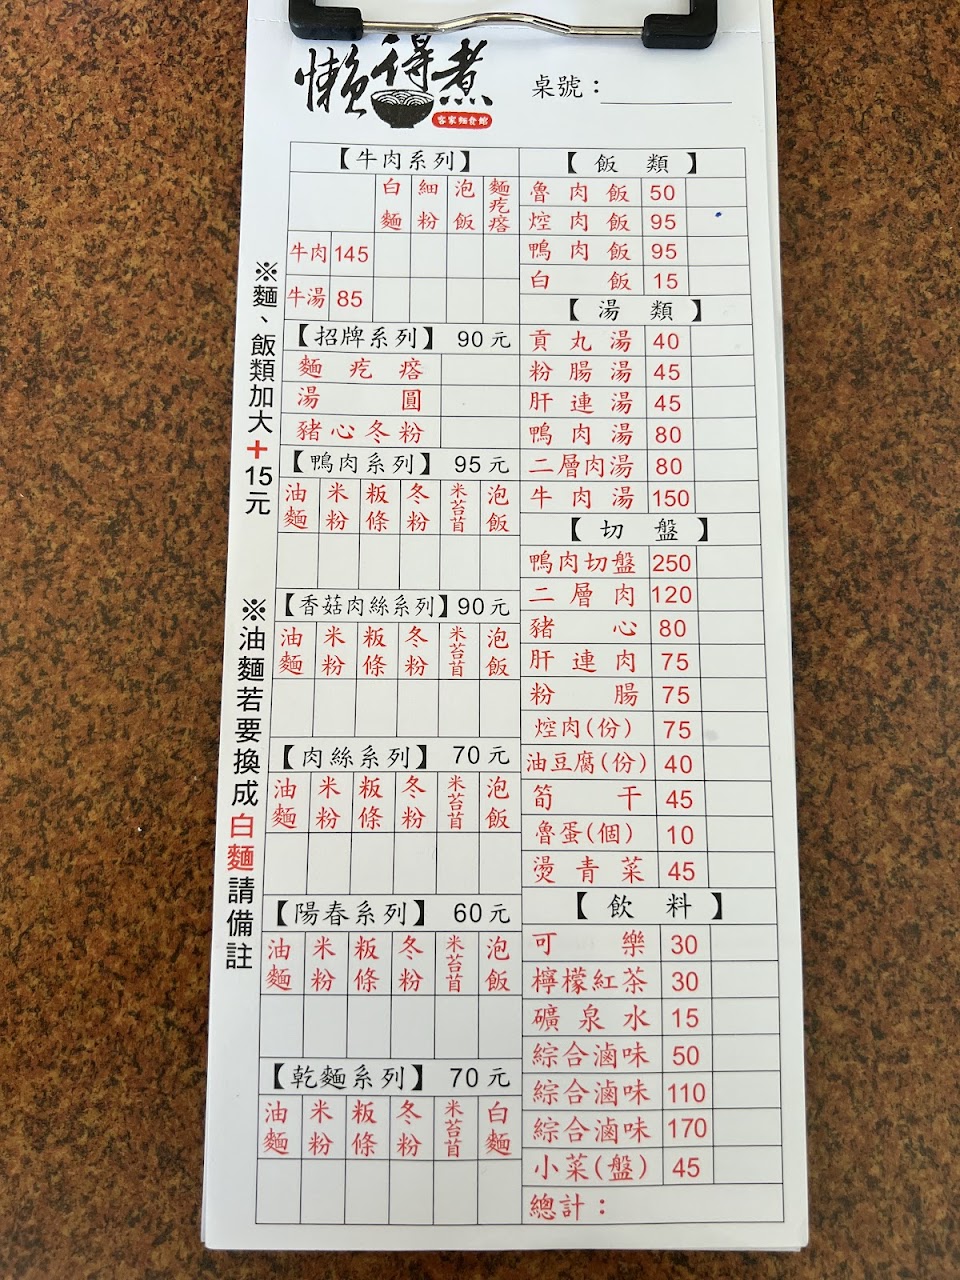 懶得煮
客家麵食館
桌號：
【牛肉系列】
白麵 細粉 泡飯 麵疙瘩
牛肉 145
牛湯 85
【招牌系列】 90元
麵疙瘩
湯圓
豬心冬粉
【鴨肉系列】 95元
油麵 米粉 粄條 冬粉 米苔苜 泡飯
【香菇肉絲系列】90元
油麵 米粉 粄條 冬粉 米苔苜 泡飯
【肉絲系列】 70元
油麵 米粉 粄條 冬粉 米苔苜 泡飯
【陽春系列】 60元
油麵 米粉 粄條 冬粉 米苔苜 泡飯
【乾麵系列】 70元
油麵 米粉 粄條 冬粉 米苔苜 白麵
【飯類】
魯肉飯 50
焢肉飯 95
鴨肉飯 95
白飯 15
【湯類】
貢丸湯 40
粉腸湯 45
肝連湯 45
鴨肉湯 80
二層肉湯 80
牛肉湯 150
【切盤】
鴨肉切盤 250
二層肉 120
豬心 80
肝連肉 75
粉腸 75
焢肉(份) 75
油豆腐(份) 40
筍干 45
魯蛋(個) 10
燙青菜 45
【飲料】
可樂 30
檸檬紅茶 30
礦泉水 15
綜合滷味 50
綜合滷味 110
綜合滷味 170
小菜(盤) 45
總計：
※麵、飯類加大+15元
※油麵若要換成白麵請備註